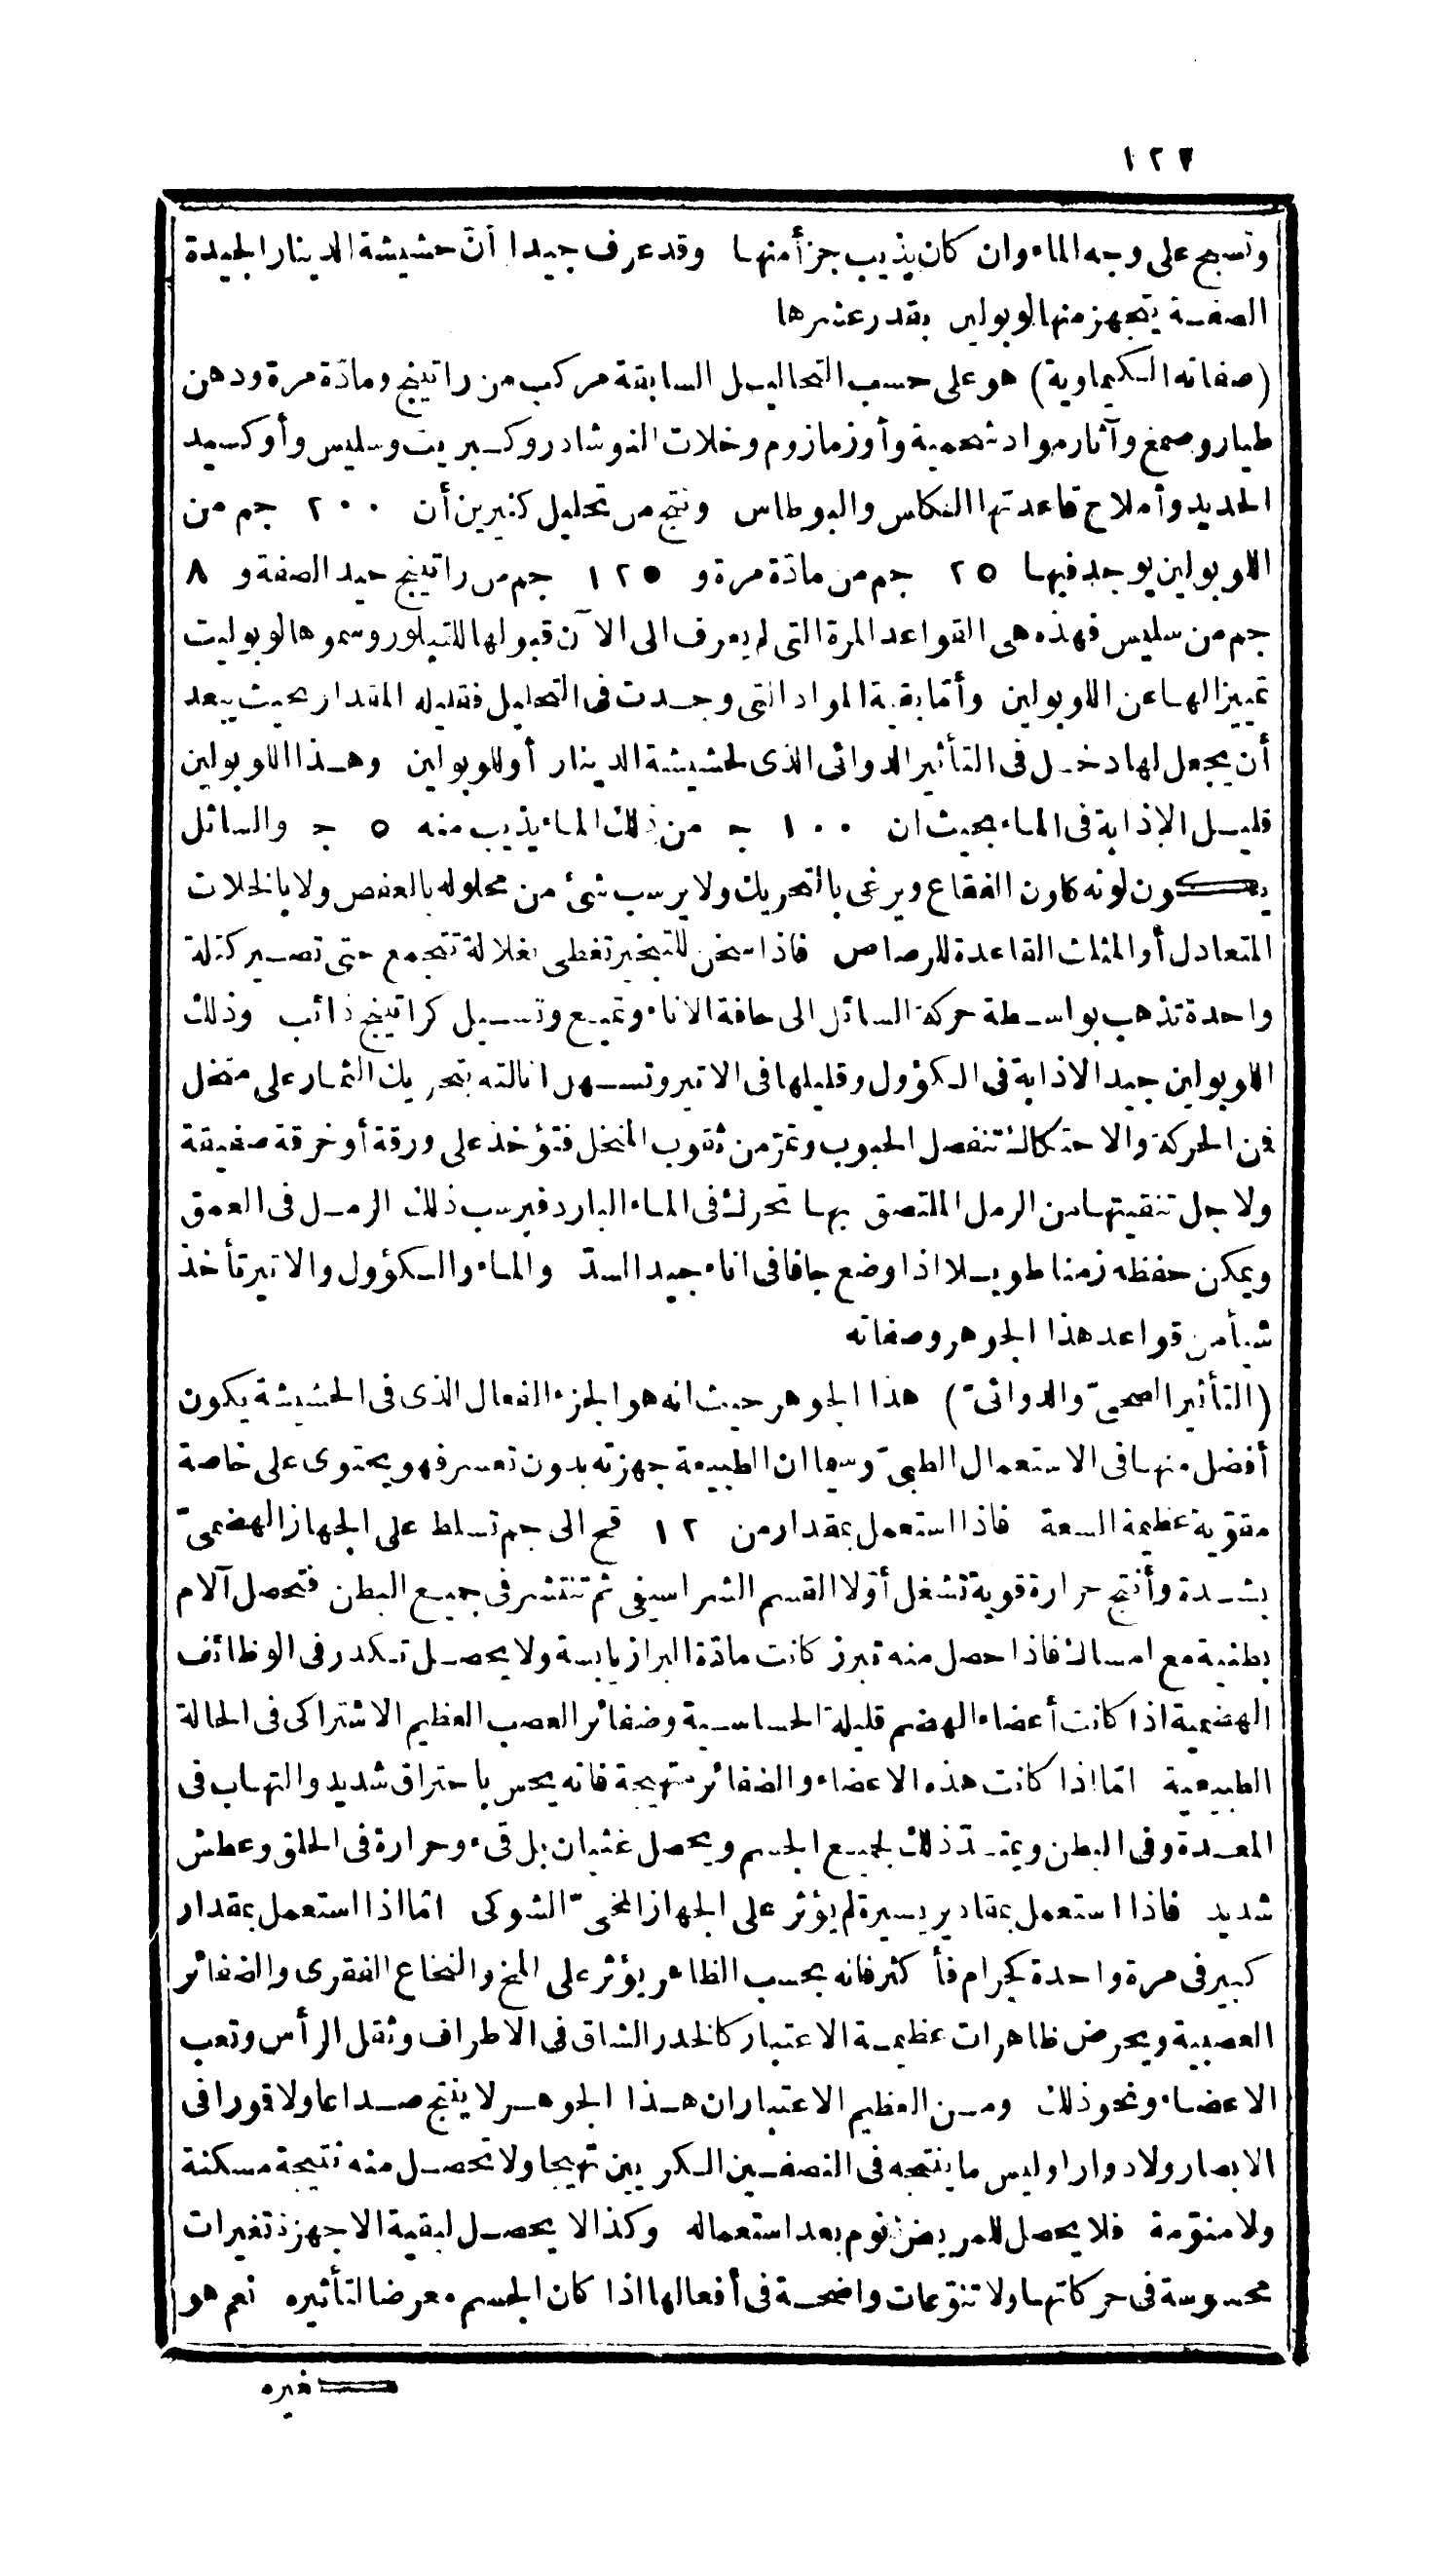 وتسبح على وجه الماء وان كان يذيب جزأ منها وقد عرف جيدا أنّ حشيشة الدينار الجيدة
الصفة يتجهز منها لوبولين بقدر عشرها
(صفاته الكيماوية) هو على حسب التحاليل السابقة مركب من راتينج ومادّة مرة ودهن
طيار وصمغ وآثار مواد شحمية وأوزمازوم وخلات النوشادر وكبريت وسليس وأوكسيد
الحديد وأملاح قاعدتها الكلس والبوطاس ونتج من تحليل كثيرين أن ٢٠٠ جم من
اللوبولين يوجد فيها ٢٥ جم من مادّة مرة و ١٢٥ جم من راتينج جيد الصفة و ٨
جم من سليس فهذه هى القواعد المرة التى لم يعرف الى الآن قبولها للتبلور وسموها لوبوليت
تمييزا لها عن اللوبولين وأمّا بقية المواد التى وجدت فى التحليل فقليله المقدار بحيث يبعد
أن يجعل لها دخل فى التأثير الدوائى الذى لحشيشة الدينار أو للوبولين وهذا اللوبولين
قليل الإذابة فى الماء بحيث ان ١٠٠ ج من ذلك الماء يذيب منه ٥ ج والسائل
يكون لونه كلون الفقاع ويرغى بالتحريك ولا يرسب شئ من محلوله بالعفص ولا بالخلات
المتعادل أو المثلث القاعدة للرصاص فاذا سخن للتبخير تغطى بغلالة تتجمع حتى تصير كتلة
واحدة تذهب بواسطة حركة السائل الى حافة الاناء وتميع وتسيل كراتينج ذائب وذلك
اللوبولين جيد الاذابة فى الكؤول وقليلها فى الاتير وتسهل انالته بتحريك الثمار على منخل
فمن الحركة والاحتكاك تنفصل الحبوب وتمرّ من ثقوب المنخل فتؤخذ على ورقة أو خرقة صفيقة
ولاجل تنقيتها من الرمل الملتصق بها تحرك فى الماء البارد فيرسب ذلك الرمل فى العمق
ويمكن حفظه زمنا طويلا اذا وضع جافا فى اناء جيد السدّ والماء والكؤول والاتير تأخذ
شيأ من قواعد هذا الجوهر وصفاته
(التأثير الصحىّ والدوائىّ) هذا الجوهر حيث انه هو الجزء الفعال الذى فى الحشيشة يكون
أفضل منها فى الاستعمال الطبىّ وسيما ان الطبيعة جهزته بدون تعسر فهو يحتوى على خاصة
مقوّية عظيمة السعة فاذا استعمل بمقدار من ١٢ قمح الى جم تسلط على الجهاز الهضمىّ
بشدة وأنتج حرارة قوية تشغل أوّلا القسم الشراسيفى ثم تنتشر فى جميع البطن فتحصل آلام
بطنية مع امساك فاذا حصل منه تبرز كانت مادّة البراز يابسة ولا يحصل تكدر فى الوظائف
الهضمية اذا كانت أعضاء الهضم قليلة الحساسية وضفائر العصب العظيم الاشتراكى فى الحالة
الطبيعية امّا اذا كانت هذه الاعضاء والضفائر متهيجة فانه يحس باحتراق شديد والتهاب فى
المعدة وفى البطن ويمتدّ ذلك لجميع الجسم ويحصل غثيان بل قىء وحرارة فى الحلق وعطش
شديد فاذا استعمل بمقادير يسيرة لم يؤثر على الجهاز المخىّ الشوكى امّا اذا استعمل بمقدار
كبير فى مرة واحدة كجرام فأكثر فانه بحسب الظاهر يؤثر على المخ والنخاع الفقرى والضفائر
العصبية ويحرض ظاهرات عظيمة الاعتبار كالخدر الشاق فى الاطراف وثقل الرأس وتعب
الاعضاء ونحو ذلك ومن العظيم الاعتبار ان هذا الجوهر لا ينتج صداعا ولا فتورا فى
الابصار ولا دوارا وليس ما ينتجه فى النصفين الكريين تهيجا ولا تحصل منه نتيجة مسكنة
ولا منوّمة فلا يحصل للمريض نوم بعد استعماله وكذا لا يحصل لبقية الاجهزة تغيرات
محسوسة فى حركاتها ولا تنوّعات واضحة فى أفعالها اذا كان الجسم معرضا لتأثيره نعم هو
غيره